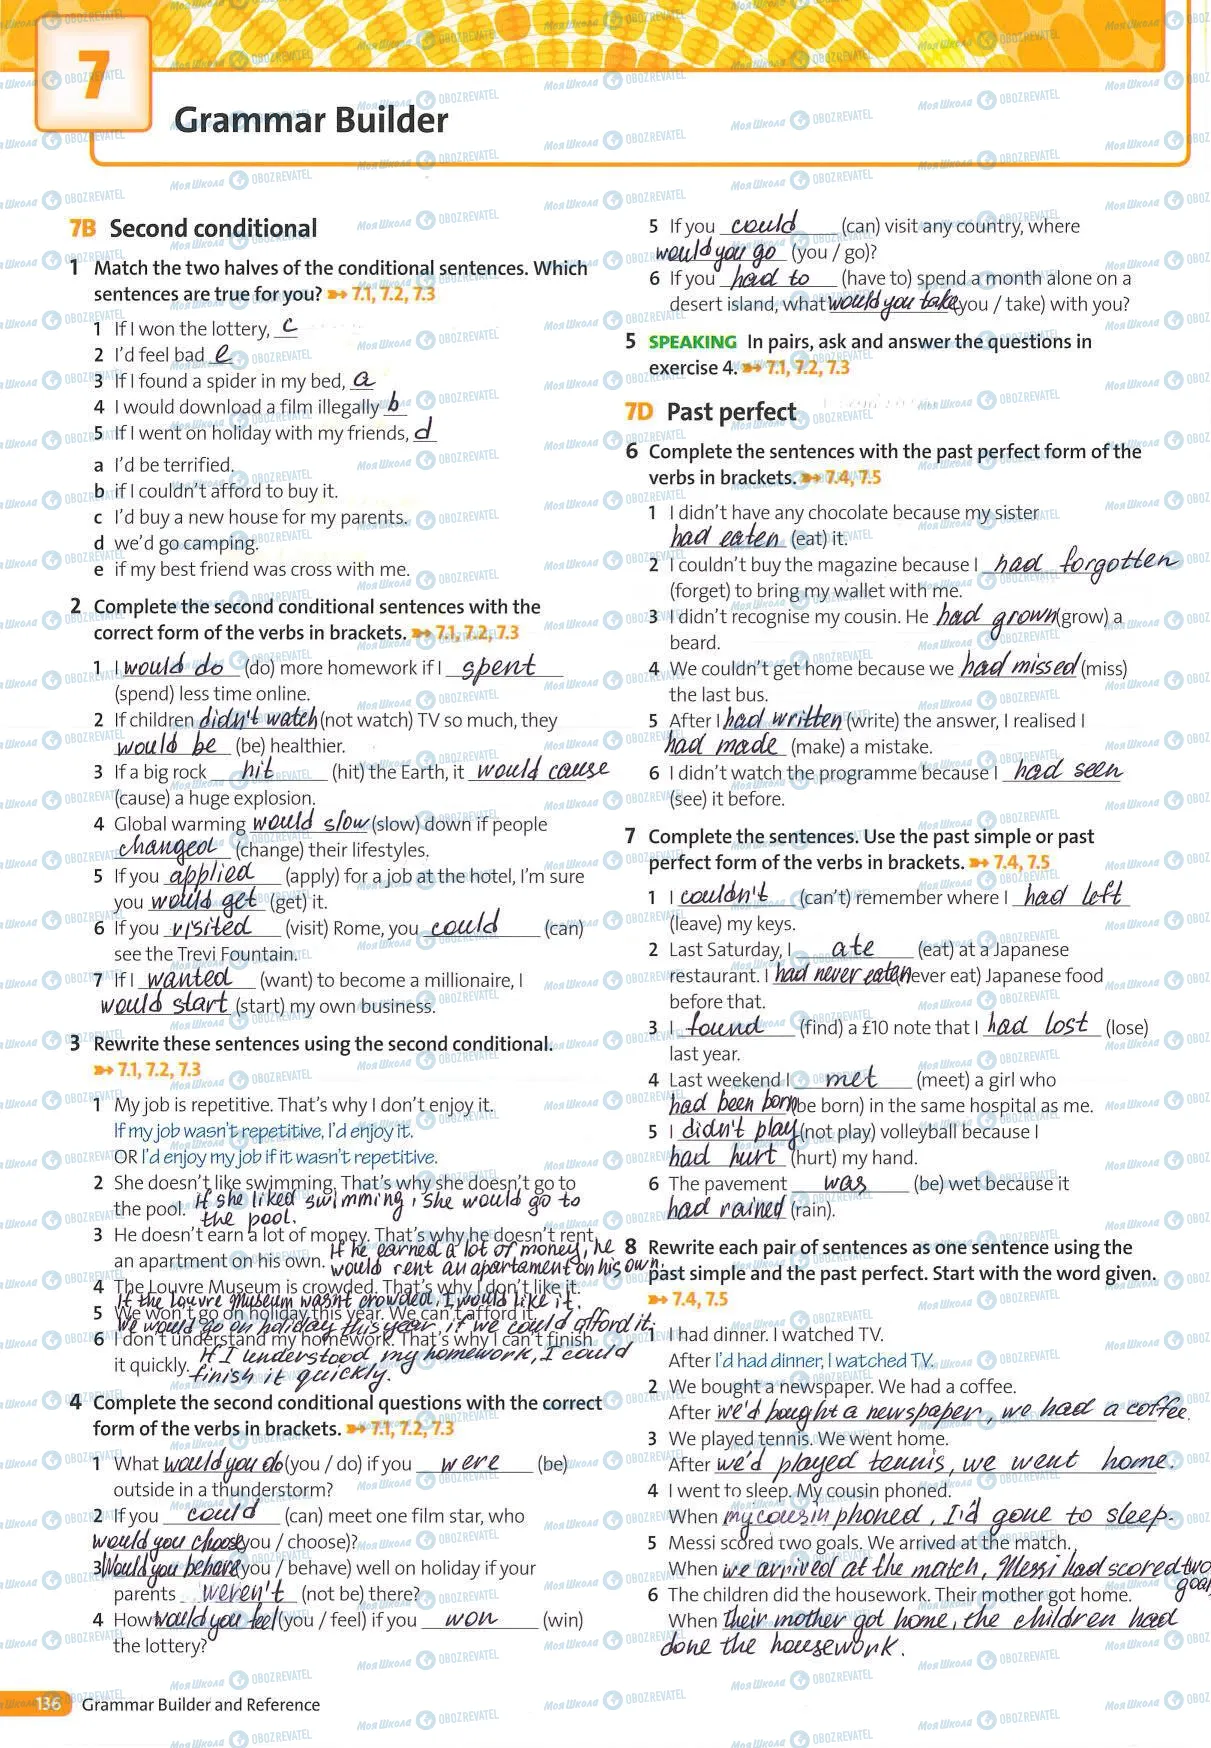 7
Grammar Builder
7B Second conditional
1 Match the two halves of the conditional sentences. Which
sentences are true for you? ➳ 7.1, 7.2, 7.3
1 If I won the lottery, c
2 I'd feel bad e
3 If I found a spider in my bed, a
4 I would download a film illegally b
5 If I went on holiday with my friends, d
a I'd be terrified.
b if I couldn't afford to buy it.
c I'd buy a new house for my parents.
d we'd go camping.
e if my best friend was cross with me.
2 Complete the second conditional sentences with the
correct form of the verbs in brackets. ➳ 7.1, 7.2, 7.3
1 I would do (do) more homework if I spent
(spend) less time online.
2 If children didn't watch (not watch) TV so much, they
would be (be) healthier.
3 If a big rock hit (hit) the Earth, it would cause
(cause) a huge explosion.
4 Global warming would slow (slow) down if people
changed (change) their lifestyles.
5 If you applied (apply) for a job at the hotel, I'm sure
you would get (get) it.
6 If you visited (visit) Rome, you could (can)
see the Trevi Fountain.
7 If I wanted (want) to become a millionaire, I
would start (start) my own business.
3 Rewrite these sentences using the second conditional.
➳ 7.1, 7.2, 7.3
1 My job is repetitive. That's why I don't enjoy it.
If my job wasn't repetitive, I'd enjoy it.
OR I'd enjoy my job if it wasn't repetitive.
2 She doesn't like swimming. That's why she doesn't go to
the pool. If she liked swimming, she would go to
the pool.
3 He doesn't earn a lot of money. That's why he doesn't rent
an apartment on his own. If he earned a lot of money, he
would rent an apartament on his own.
4 The Louvre Museum is crowded. That's why I don't like it.
If the Louvre Museum wasn't crowded, I would like it.
5 We won't go on holiday this year. We can't afford it.
We would go on holiday this year if we could afford it.
6 I don't understand my homework. That's why I can't finish
it quickly. If I understood my homework, I could
finish it quickly.
4 Complete the second conditional questions with the correct
form of the verbs in brackets. ➳ 7.1, 7.2, 7.3
1 What would you do (you / do) if you were (be)
outside in a thunderstorm?
2 If you could (can) meet one film star, who
would you choose (you / choose)?
3 Would you behave (you / behave) well on holiday if your
parents weren't (not be) there?
4 How would you feel (you / feel) if you won (win)
the lottery?
5 If you could (can) visit any country, where
would you go (you / go)?
6 If you had to (have to) spend a month alone on a
desert island, what would you take (you / take) with you?
5 SPEAKING In pairs, ask and answer the questions in
exercise 4. ➳ 7.1, 7.2, 7.3
7D Past perfect
6 Complete the sentences with the past perfect form of the
verbs in brackets. ➳ 7.4, 7.5
1 I didn't have any chocolate because my sister
had eaten (eat) it.
2 I couldn't buy the magazine because I had forgotten
(forget) to bring my wallet with me.
3 I didn't recognise my cousin. He had grown (grow) a
beard.
4 We couldn't get home because we had missed (miss)
the last bus.
5 After I had written (write) the answer, I realised I
had made (make) a mistake.
6 I didn't watch the programme because I had seen
(see) it before.
7 Complete the sentences. Use the past simple or past
perfect form of the verbs in brackets. ➳ 7.4, 7.5
1 I couldn't (can't) remember where I had left
(leave) my keys.
2 Last Saturday, I ate (eat) at a Japanese
restaurant. I had never eaten (never eat) Japanese food
before that.
3 I found (find) a £10 note that I had lost (lose)
last year.
4 Last weekend I met (meet) a girl who
had been born (be born) in the same hospital as me.
5 I didn't play (not play) volleyball because I
had hurt (hurt) my hand.
6 The pavement was (be) wet because it
had rained (rain).
8 Rewrite each pair of sentences as one sentence using the
past simple and the past perfect. Start with the word given.
➳ 7.4, 7.5
1 I had dinner. I watched TV.
After I'd had dinner, I watched TV.
2 We bought a newspaper. We had a coffee.
After we'd bought a newspaper, we had a coffee.
3 We played tennis. We went home.
After we'd played tennis, we went home.
4 I went to sleep. My cousin phoned.
When my cousin phoned, I'd gone to sleep.
5 Messi scored two goals. We arrived at the match.
When we arrived at the match, Messi had scored two
goals
6 The children did the housework. Their mother got home.
When Their mother got home, the children had
done the housework.
136 Grammar Builder and Reference
Моя Школа OBOZREVATEL